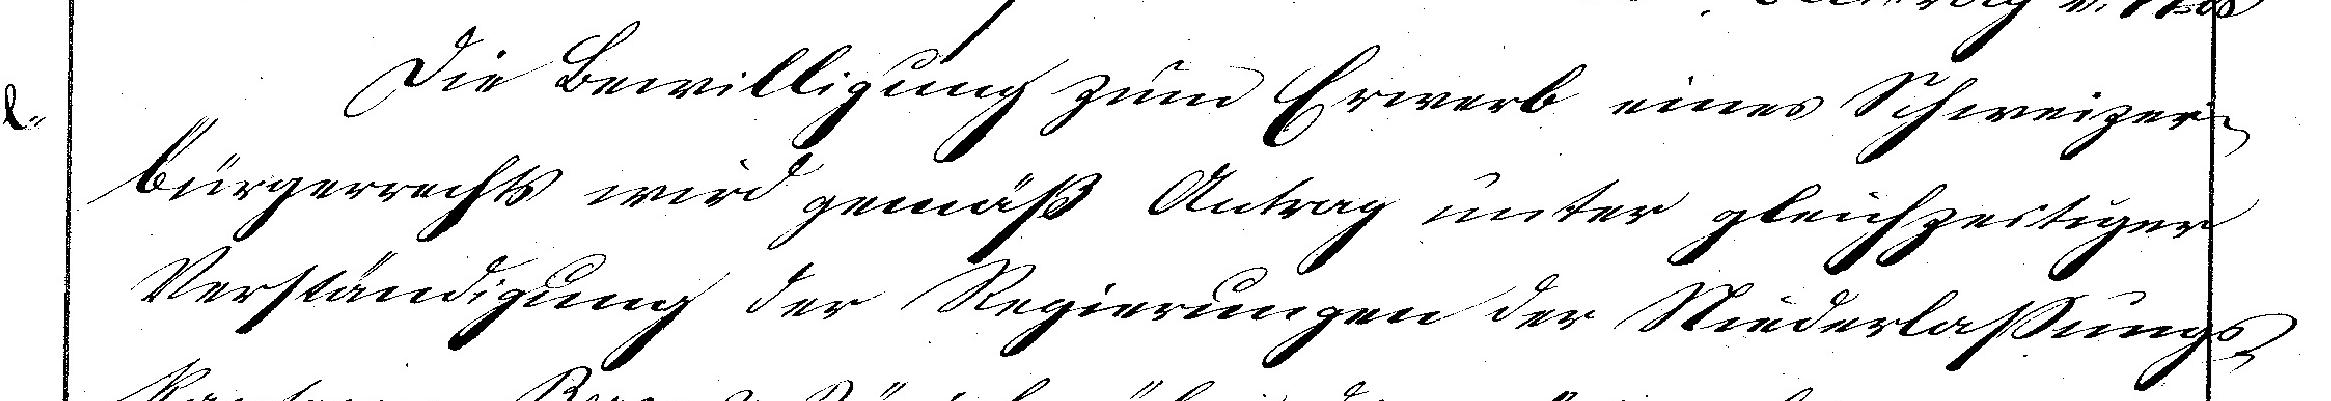 Die Bewilligung zum Erwerb eines Schweizer-
bürgerrechts wird gemäß Antrag unter gleichzeitiger
Verständigung der Regierungen der Niederlaßungs-